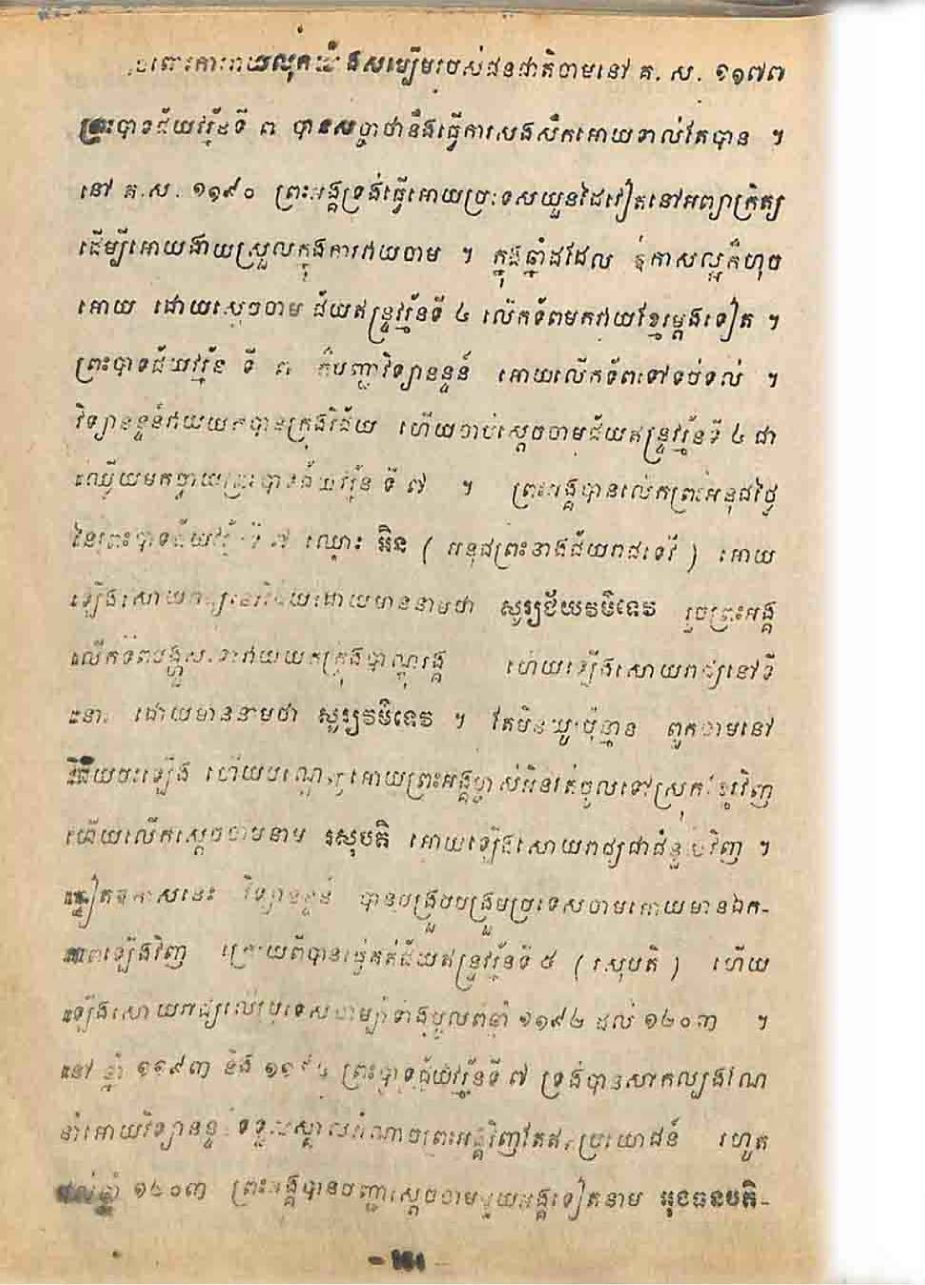 ចំពោះការវាយលុកយ៉ាងសម្បើមរបស់ជនជាតិចាមនៅ គ. ស. ១១៧៧
ព្រះបាទជ័យវរ្ម័នទី ៧ បានសច្ចាថានឹងធ្វើការសងសឹកអោយទាល់តែបាន ។
នៅ គ.ស. ១១៩០ ព្រះអង្គទ្រង់ធ្វើអោយប្រទេសយួនដៃវៀតនៅអព្យាក្រិត្យ
ដើម្បីអោយងាយស្រួលក្នុងការវាយចាម ។ ក្នុងឆ្នាំដដែល ឱកាសល្អក៏ហុច
អោយ ដោយស្តេចចាម ជ័យឥន្ទ្រវរ្ម័នទី ៤ លើកទ័ពមកវាយខ្មែរម្តងទៀត ។
ព្រះបាទជ័យវរ្ម័ន ទី ៧ ក៏បញ្ជាវិទ្យានន្ទន៍ អោយលើកទ័ពទៅទប់ទល់ ។
វិទ្យានន្ទន៍វាយយកបានក្រុងវិជ័យ ហើយចាប់ស្តេចចាមជ័យឥន្ទ្រវរ្ម័នទី ៤ ជា
ឈ្លើយមកថ្វាយព្រះបាទជ័យវរ្ម័ន ទី ៧ ។ ព្រះអង្គបានលើកព្រះអនុជថ្លៃ
នៃព្រះបាទជ័យវរ្ម័នទី ៧ ឈ្មោះ អ៊ិន ( អនុជព្រះនាងជ័យរាជទេវី ) អោយ
ឡើងសោយរាជ្យនៅវិជ័យដោយមាននាមថា សូរ្យជ័យវម៌ទេវ រួចព្រះអង្គ
លើកទ័ពបង្ហួសទៅវាយយកក្រុងបាណ្ឌុរង្គ ហើយឡើងសោយរាជ្យនៅទី
នោះ ដោយមាននាមថា សូរ្យវម៌ទេវ ។ តែមិនយូរប៉ុន្មាន ពួកចាមនៅ
វិជ័យបះឡើង ហើយបណ្តេញអោយព្រះអង្គម្ចាស់អិនរត់ចូលទៅស្រុកខ្មែរវិញ
ហើយលើកស្តេចចាមនាម រសុបតិ អោយឡើងសោយរាជ្យជាជំនួសវិញ ។
ឆ្លៀតឱកាសនេះ វិទ្យានន្ទន៍ បានបង្រួបបង្រួមប្រទេសចាមអោយមានឯក-
ភាពឡើងវិញ ក្រោយពីបានធ្វើគត់ជ័យឥន្ទ្រវរ្ម័នទី ៥ ( រសុបតិ ) ហើយ
ឡើងសោយរាជ្យលើប្រទេសចាម្ប៉ាទាំងមូលពីឆ្នាំ ១១៩២ ដល់ ១២០៣ ។
នៅ ឆ្នាំ ១១៩៣ និង ១១៩៤ ព្រះបាទជ័យវរ្ម័នទី ៧ ទ្រង់បានសាកល្បងណែ
នាំអោយវិទ្យានន្ទ ទទួលស្គាល់អំណាចព្រះអង្គវិញតែឥតប្រយោជន៍ រហូត
ដល់ឆ្នាំ ១២០៣ ព្រះអង្គបានបញ្ជាស្តេចចាមមួយអង្គទៀតនាម អុងធនបតិ-